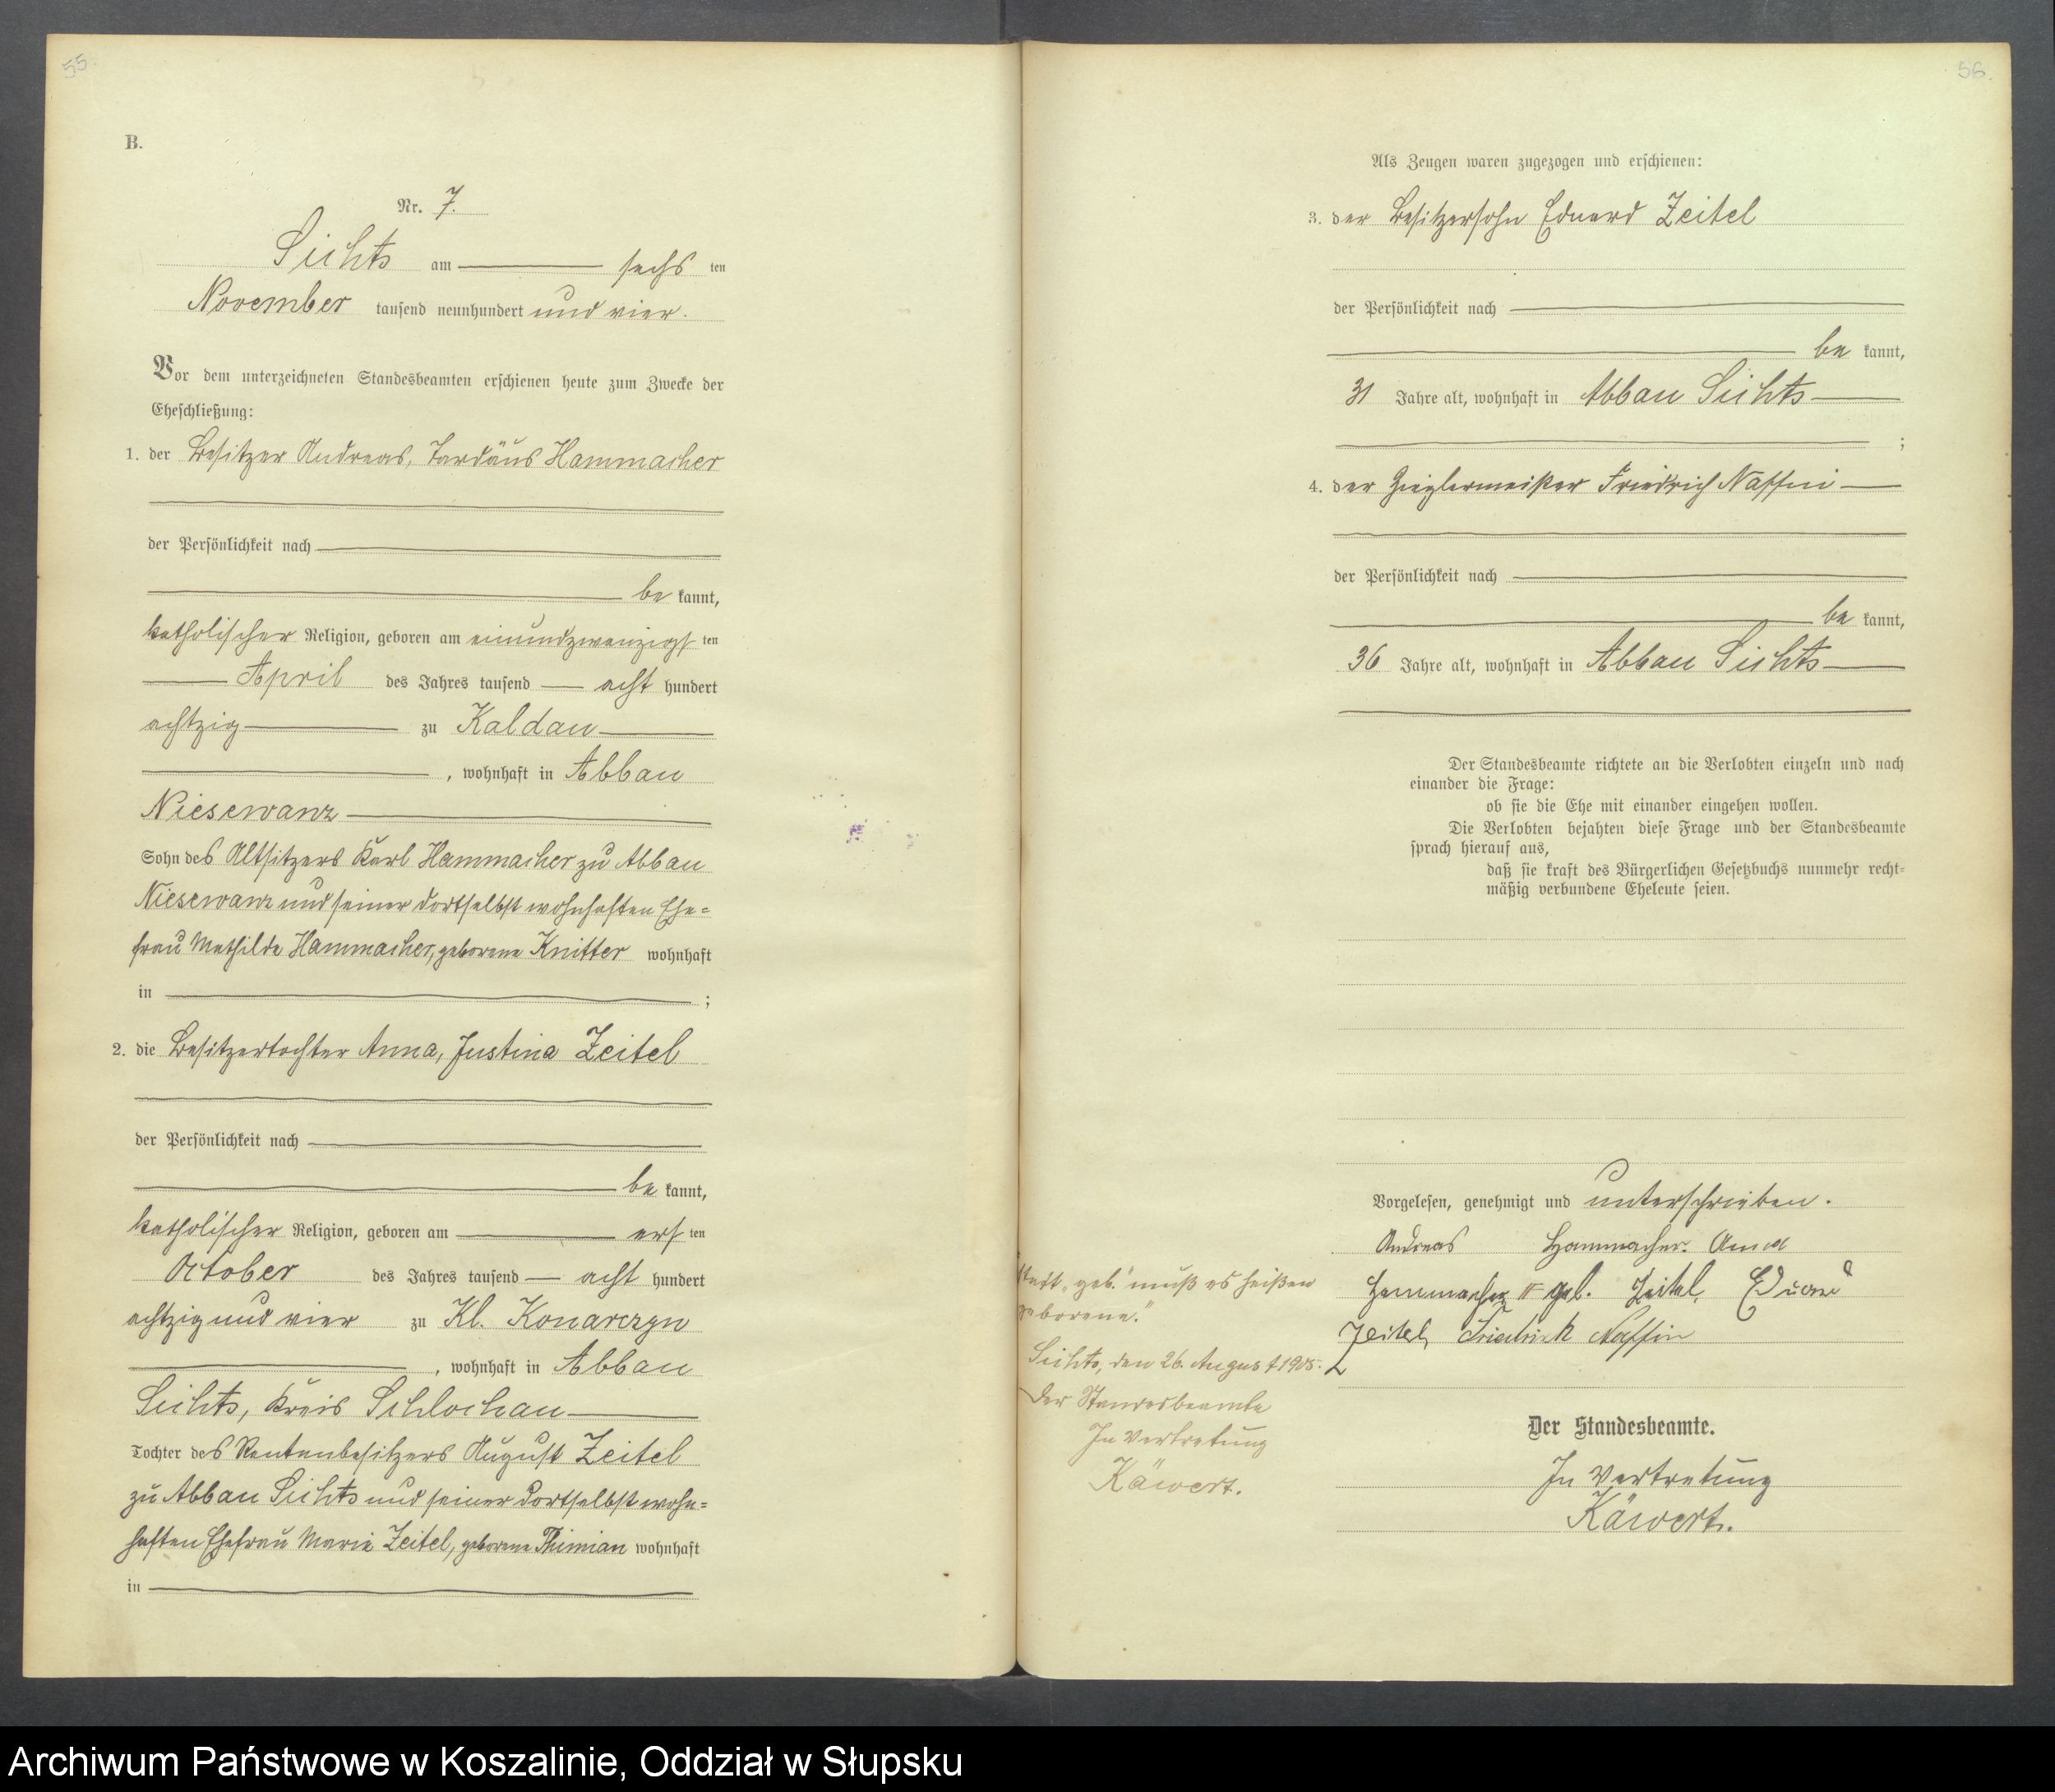 55.
B.
Nr. 7.
Sichts am sechs ten
November tausend neunhundert und vier.
Vor dem unterzeichneten Standesbeamten erschienen heute zum Zwecke der
Eheschließung:
1. der Besitzer Andreas, Tardäus Hammacher
der Persönlichkeit nach
be kannt,
katholischer Religion, geboren am einundzwanzigs ten
April des Jahres tausend acht hundert
achtzig zu Kaldau
, wohnhaft in Abbau
Niesewanz
Sohn des Altsitzers Karl Hammacher zu Abbau
Niesewanz und seiner dortselbst wohnhaften Ehe=
frau Mathilde Hammacher, geborene Knitter wohnhaft
in ;
2. die Besitzertochter Anna, Justina Zeitel
der Persönlichkeit nach
be kannt,
katholischer Religion, geboren am ers ten
October des Jahres tausend acht hundert
achtzig und vier zu Kl. Konarczyn
, wohnhaft in Abbau
Sichts, Kreis Schlochau
Tochter des Rentenbesitzers August Zeitel
zu Abbau Sichts und seiner dortselbst wohn=
haften Ehefrau Marie Zeitel, geborene Thimian wohnhaft
in
56.
Als Zeugen waren zugezogen und erschienen:
3. der Besitzersohn Eduard Zeitel
der Persönlichkeit nach
be kannt,
31 Jahre alt, wohnhaft in Abbau Sichts
;
4. der Zieglermeister Friedrich Naffin
der Persönlichkeit nach
be kannt,
36 Jahre alt, wohnhaft in Abbau Sichts
Der Standesbeamte richtete an die Verlobten einzeln und nach
einander die Frage:
ob sie die Ehe mit einander eingehen wollen.
Die Verlobten bejahten diese Frage und der Standesbeamte
sprach hierauf aus,
daß sie kraft des Bürgerlichen Gesetzbuchs nunmehr recht=
mäßig verbundene Eheleute seien.
Vorgelesen, genehmigt und unterschrieben.
Andreas Hammacher. Anna
Hammacher geb. Zeitel. Eduard
Zeitel, Friedrich Naffin
Statt „geb." muß es heißen
geborene."
Sichts, den 26. August 1905.
Der Standesbeamte
In Vertretung
Käwert.
Der Standesbeamte.
In Vertretung
Käwert.
Archiwum Państwowe w Koszalinie, Oddział w Słupsku